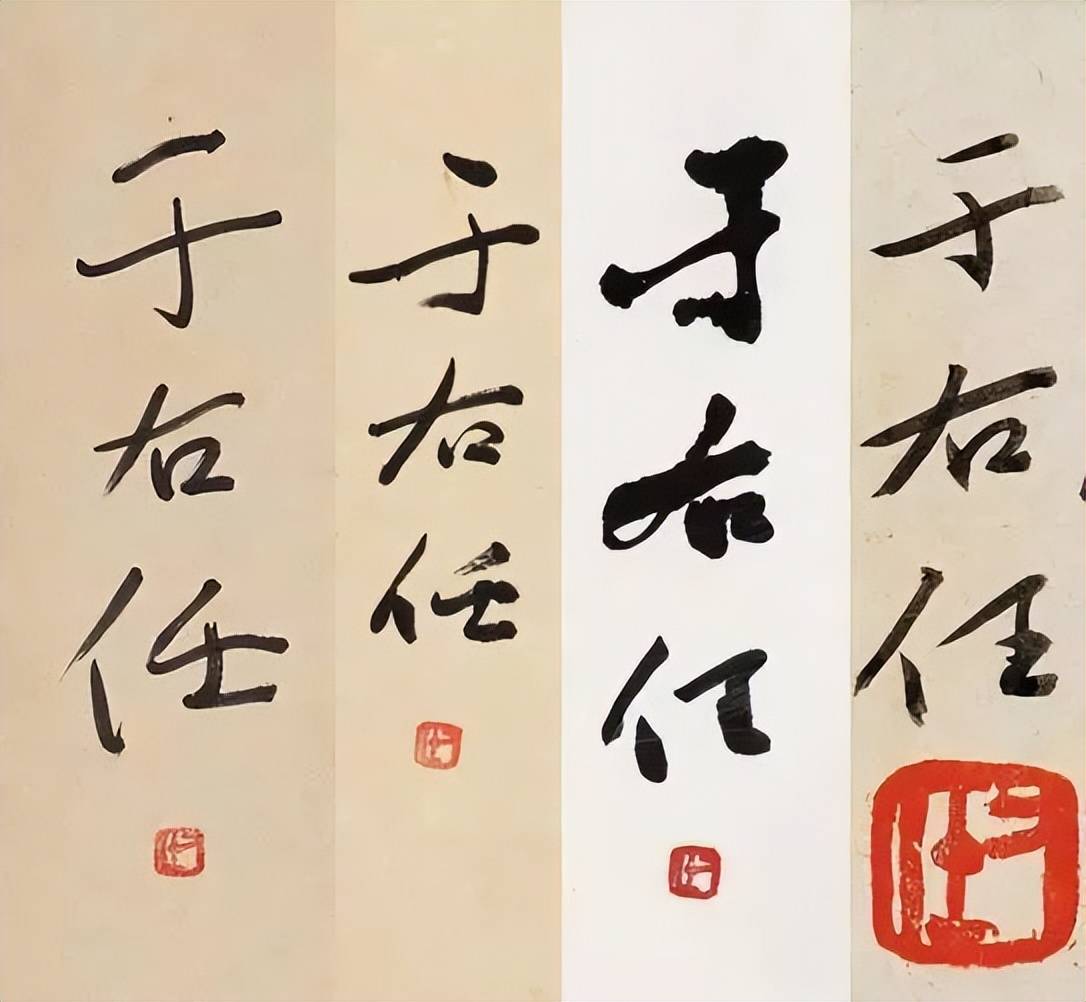 于右任
于右任
于右任
于右任